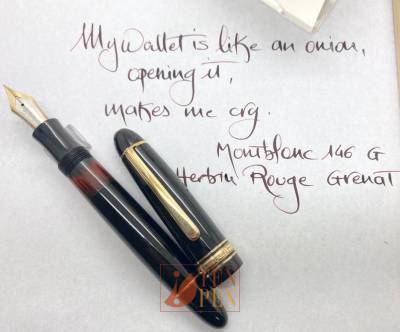 My wallet is like an onion,
opening it,
makes me cry.
Montblanc 146 G
Herbin Rouge Grenat
PEN
PEN